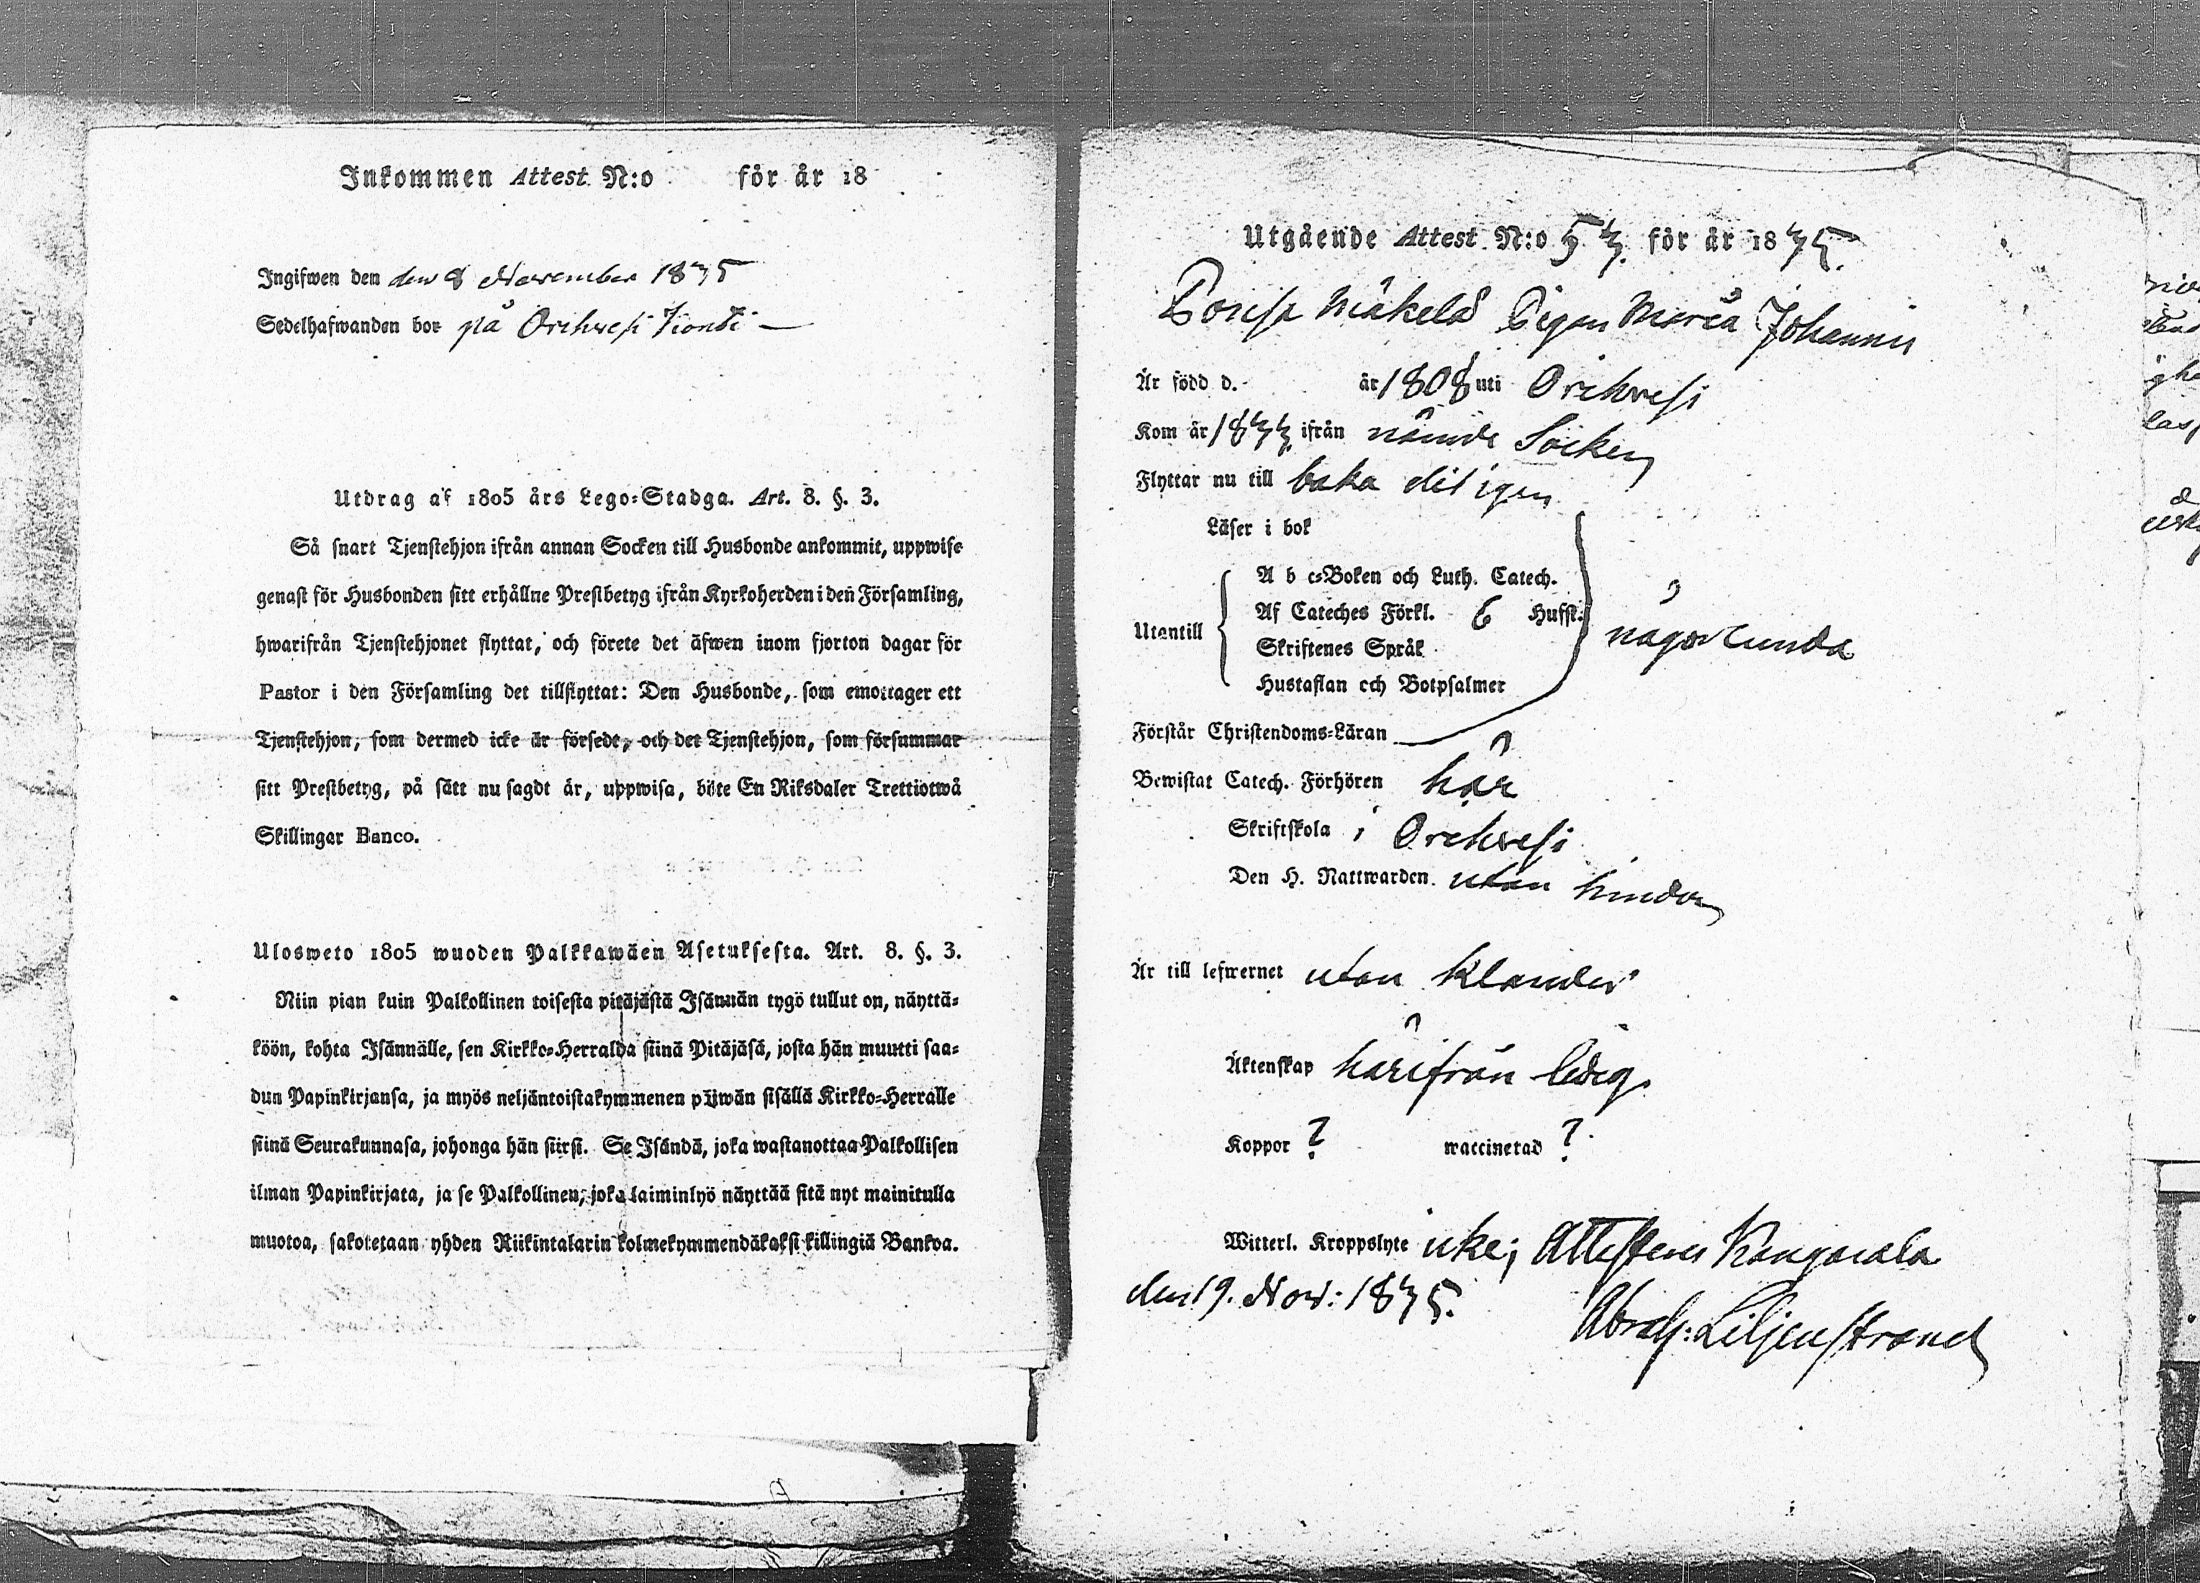 Inkommen Attest N:o för år 18
Ingifwen den den 8 November 1835
Sedelhafwanden bor på Orihvesi
Utdrag af 1805 års Lego-Stadga. Art. 8. §. 3.
Så snart Tjenstehjon ifrån annan Socken till Husbonde ankommit, uppwise
genast för Husbonden sitt erhållne Prestbetyg ifrån Kyrkoherden i den Församling,
hwarifrån Tjenstehjonet flyttat, och förete det äfwen inom fjorton dagar för
Pastor i den Församling det tillflyttat: Den Husbonde, som emottager ett
Tjenstehjon, som dermed icke är försedt, och det Tjenstehjon, som försummar
sitt Prestbetyg, på sätt nu sagdt är, uppwisa, böte En Riksdaler Trettiotwå
Skillingar Banco.
Ulosweto 1805 wuoden Palkkawäen Asetuksesta. Art. 8. §. 3.
Niin pian kuin Palkollinen toisesta pitäjästä Isännän tygö tullut on, näyttä-
köön, kohta Isännälle, sen Kirkko-Herralda siinä Pitäjäsä, josta hän muutti saa-
dun Papinkirjansa, ja myös neljäntoistakymmenen päiwän sisällä Kirkko-Herralle
siinä Seurakunnasa, johonga hän siirsi. Se Isändä, joka wastanottaa Palkollisen
ilman Papinkirjata, ja se Palkollinen, joka laiminlyö näyttää sitä nyt mainitulla
muotoa, sakotetaan yhden Riikintalarin kolmekymmendäkaksi killingiä Bankoa.
Utgående Attest N:o 53. för år 1835.
Mäkelä Pigan Maria Johannis
Är född d. år 1808 uti Orihvesi
Kom år 1833 ifrån nämde Socken
Flyttar nu till baka dit igen
Läser i bok
Utantill
A b c-Boken och Luth. Catech.
Af Cateches Förkl. 6 Hufst.
Skriftenes Språk
Hustaflan och Botpsalmer
någorlunda
Förstår Christendoms-Läran
Bewistat Catech. Förhören här
Skriftskola i Orihvesi
Den H. Nattwarden utan hinder
Är till lefwernet utan klander
Äktenskap härifrån ledig.
Koppor ? waccinerad ?
Witterl. Kroppslyte icke; Attesteras Kangasala
den 19. Nov: 1835.
Abrah: Liljenstrand